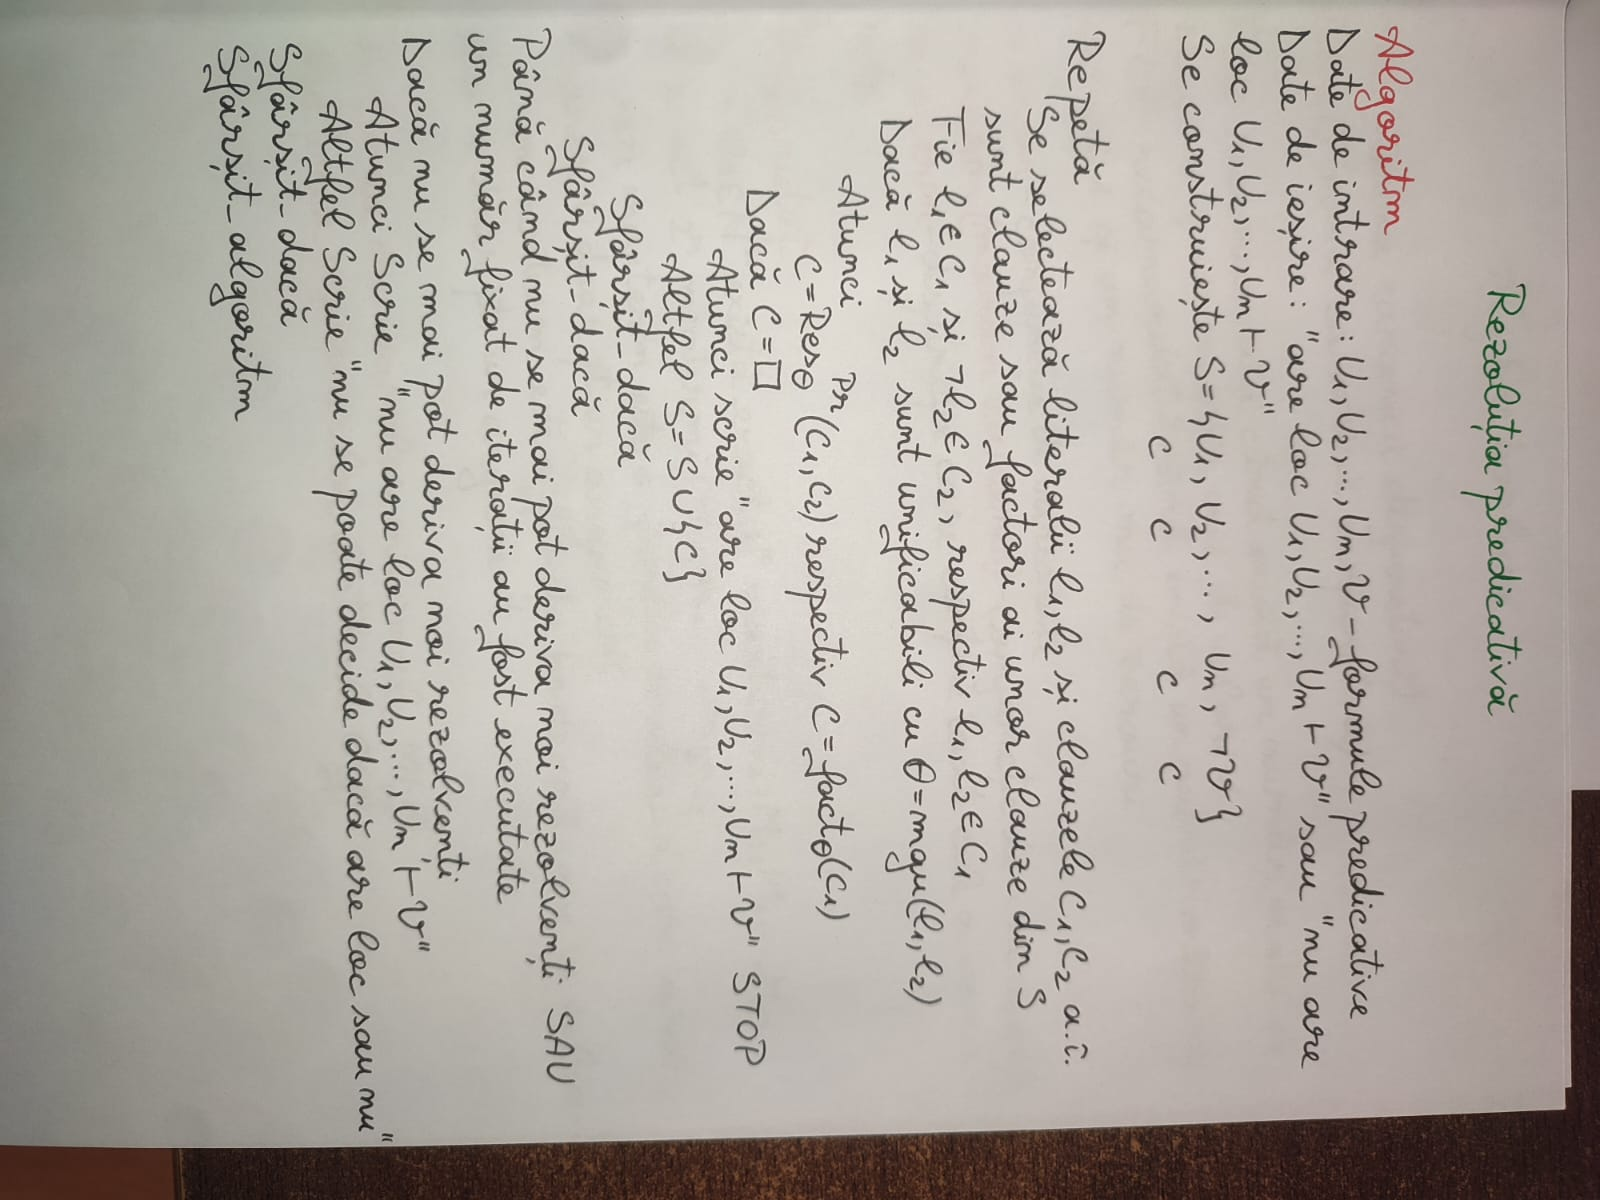 Rezoluția predicativă
Algoritm
Date de intrare: U1, U2, ..., Un, V - formule predicative
Date de ieșire: "are loc U1, U2, ..., Un ⊢ V" sau "nu are
loc U1, U2, ..., Un ⊢ V"
Se construiește S = {U1, U2, ..., Un, ¬V}
C C C C
Repetă
Se selectează literalii l1, l2 și clauzele C1, C2 a.î.
sunt clauze sau factori ai unor clauze din S
Fie l1 ∈ C1 și ¬l2 ∈ C2, respectiv l1, l2 ∈ C1
Dacă l1 și l2 sunt unificabili cu θ = mgu(l1, l2)
Atunci
C = Resθ^Pr (C1, C2) respectiv C = factθ(C1)
Dacă C = □
Atunci scrie "are loc U1, U2, ..., Un ⊢ V" STOP
Altfel S = S ∪ {C}
Sfârșit_dacă
Sfârșit_dacă
Până când nu se mai pot deriva noi rezolvenți SAU
un număr fixat de iterații au fost executate
Dacă nu se mai pot deriva noi rezolvenți
Atunci Scrie "nu are loc U1, U2, ..., Un ⊢ V"
Altfel Scrie "nu se poate decide dacă are loc sau nu"
Sfârșit_dacă
Sfârșit_algoritm